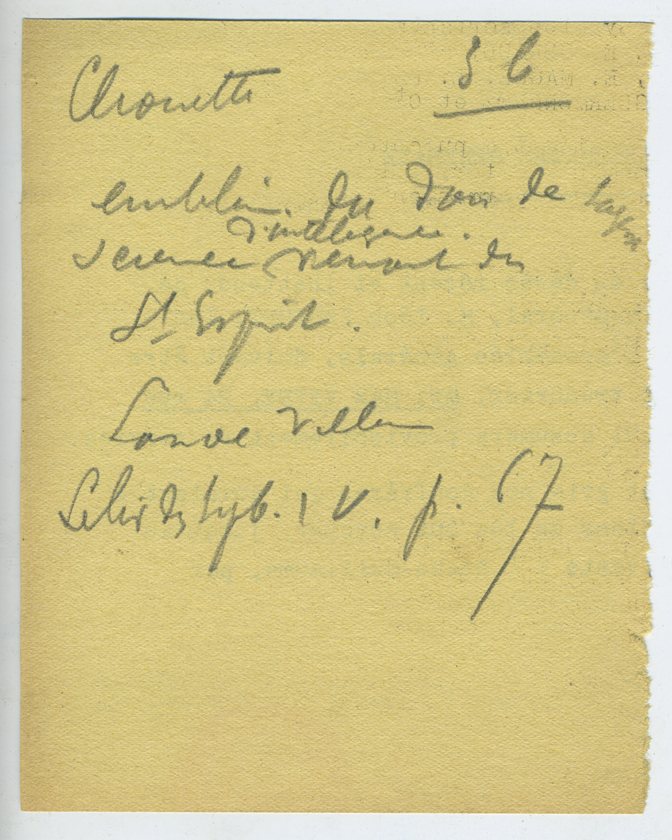 Chouette 36
emblèm. du Don de Sagesse
d'intelligence.
science venant du
St Esprit.
Lanoe Villène
Le liv des Symb. IV. p. 67